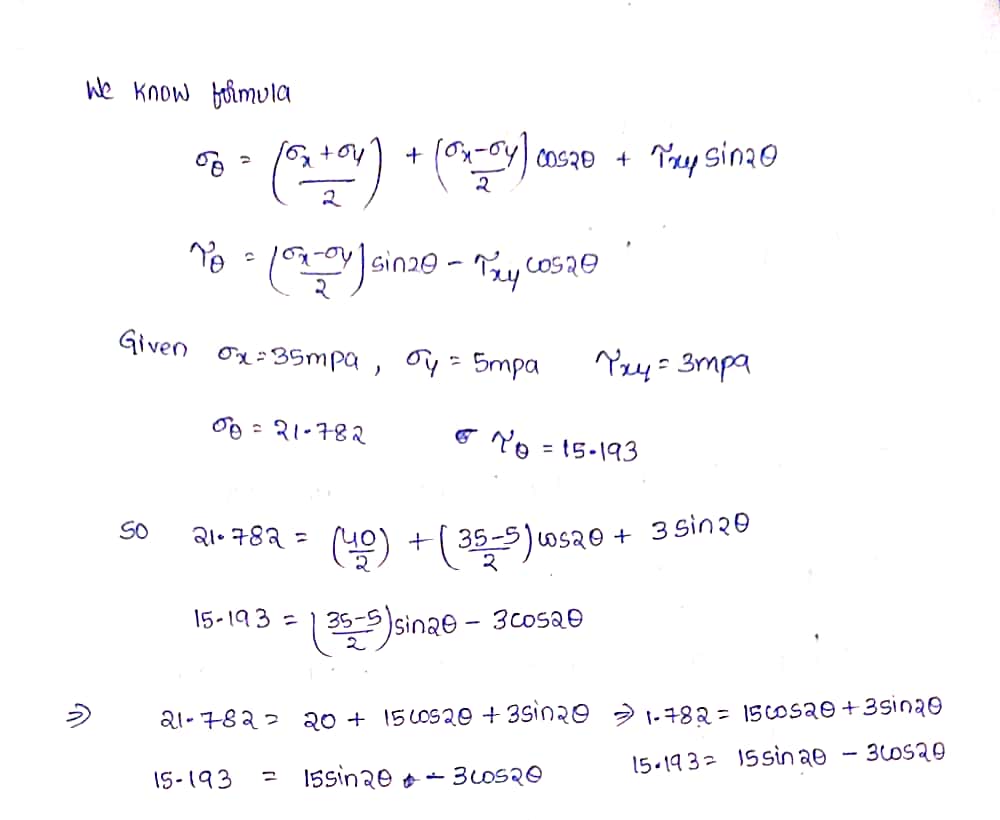 We know formula
σθ = (σx+σy/2) + (σx-σy/2) cos2θ + τxy sin2θ
τθ = (σx-σy/2) sin2θ - τxy cos2θ
Given σx = 35mpa , σy = 5mpa τxy = 3mpa
σθ = 21.782 τθ = 15.193
so 21.782 = (40/2) + (35-5/2) cos2θ + 3 sin2θ
15.193 = (35-5/2) sin2θ - 3cos2θ
⇒ 21.782 = 20 + 15cos2θ + 3sin2θ ⇒ 1.782 = 15cos2θ + 3sin2θ
15.193 = 15sin2θ - 3cos2θ 15.193 = 15sin2θ - 3cos2θ